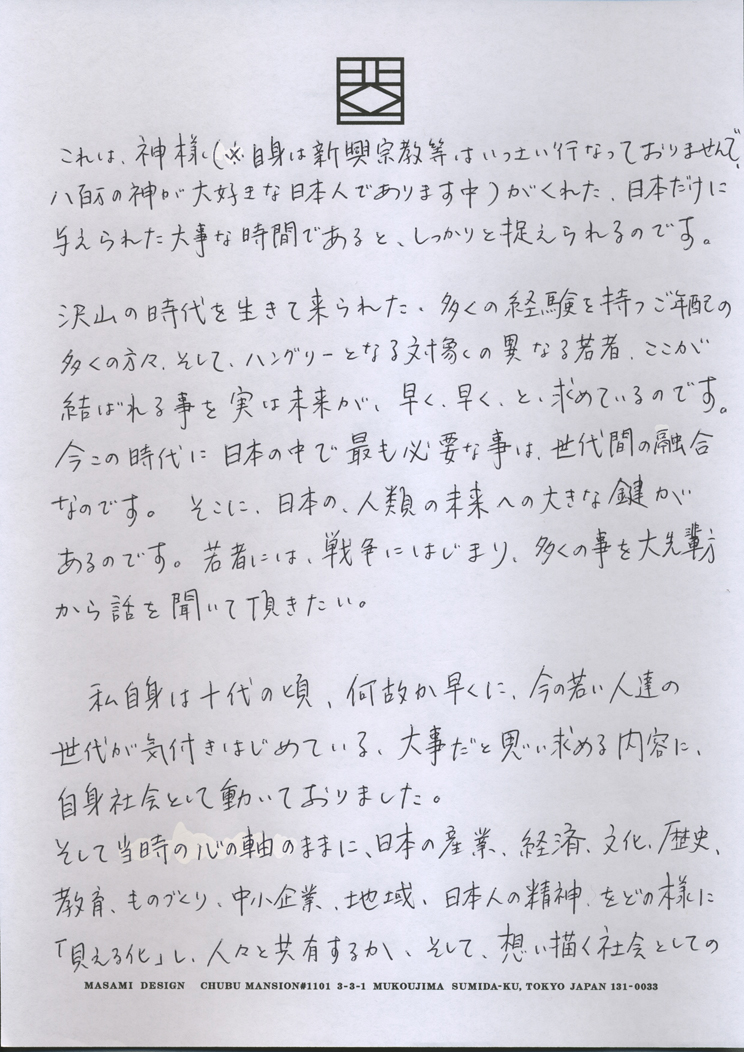 これは、神様（※自身は新興宗教等はいっさい行なっておりませんで、
八百万の神が大好きな日本人であります中）がくれた、日本だけに
与えられた大事な時間であると、しっかりと捉えられるのです。
沢山の時代を生きて来られた、多くの経験を持つご年配の
多くの方々、そして、ハングリーとなる対象の異なる若者、ここが
結ばれる事を実は未来が、早く、早く、と、求めているのです。
今この時代に日本の中で最も必要な事は、世代間の融合
なのです。そこに、日本の、人類の未来への大きな鍵が
あるのです。若者には、戦争にはじまり、多くの事を大先輩方
から話を聞いて頂きたい。
私自身は十代の頃、何故か早くに、今の若い人達の
世代が気付きはじめている、大事だと思い求める内容に、
自身社会として動いておりました。
そして当時の心の軸のままに、日本の産業、経済、文化、歴史、
教育、ものづくり、中小企業、地域、日本人の精神、をどの様に
「見える化」し、人々と共有するか、そして、想い描く社会としての
MASAMI DESIGN CHUBU MANSION#1101 3-3-1 MUKOUJIMA SUMIDA-KU, TOKYO JAPAN 131-0033